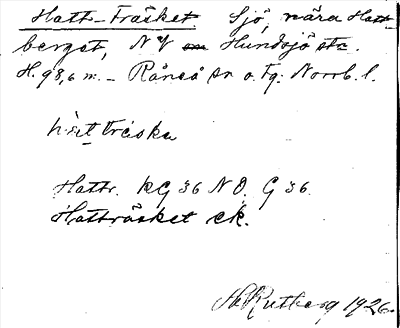 Hatt-Träsket Sjö, nära Hatt-
berget, NV om Hundsjö stn.
H. 98,6 m. - Råneå sn o. tg. Norrb. l.
hàttträska
Hattr. KG 36 NO. G 36.
Hatträsket ek.
Rutberg 1926.